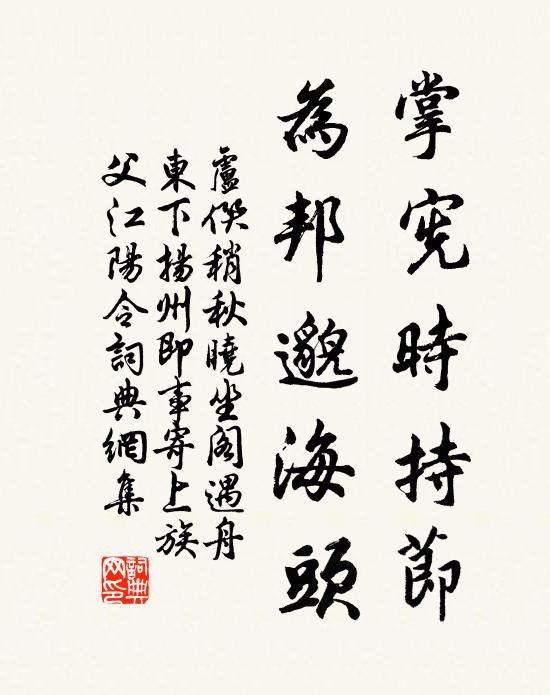 掌宪時持節
為邦邈海頭
盧僎稍秋曉坐阁遇舟
東下揚州即事寄上族
父江陽令詞典網集
詞典网印